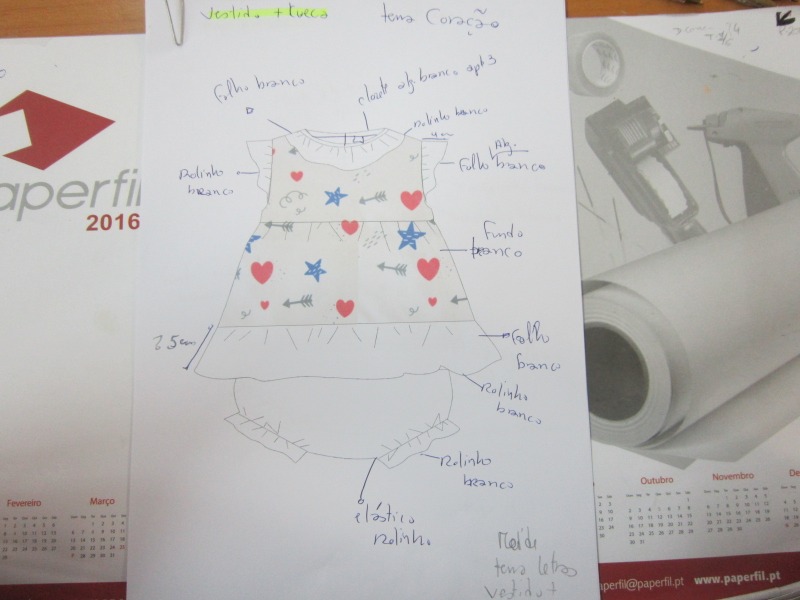 vestido + cueca
tema Coração
folho branco
branco
Rolinho branco
4cm
Rolinho
branco
folho branco
Fundo
branco
25cm
Folho
banco
Rolinho
branco
Rolinho
branco
elástico
Rolinho
tema letras
vestido +
aperfil
2016
Fevereiro
Março
Outubro
Novembro
erfil@paperfil.pt
www.paperfil.pt